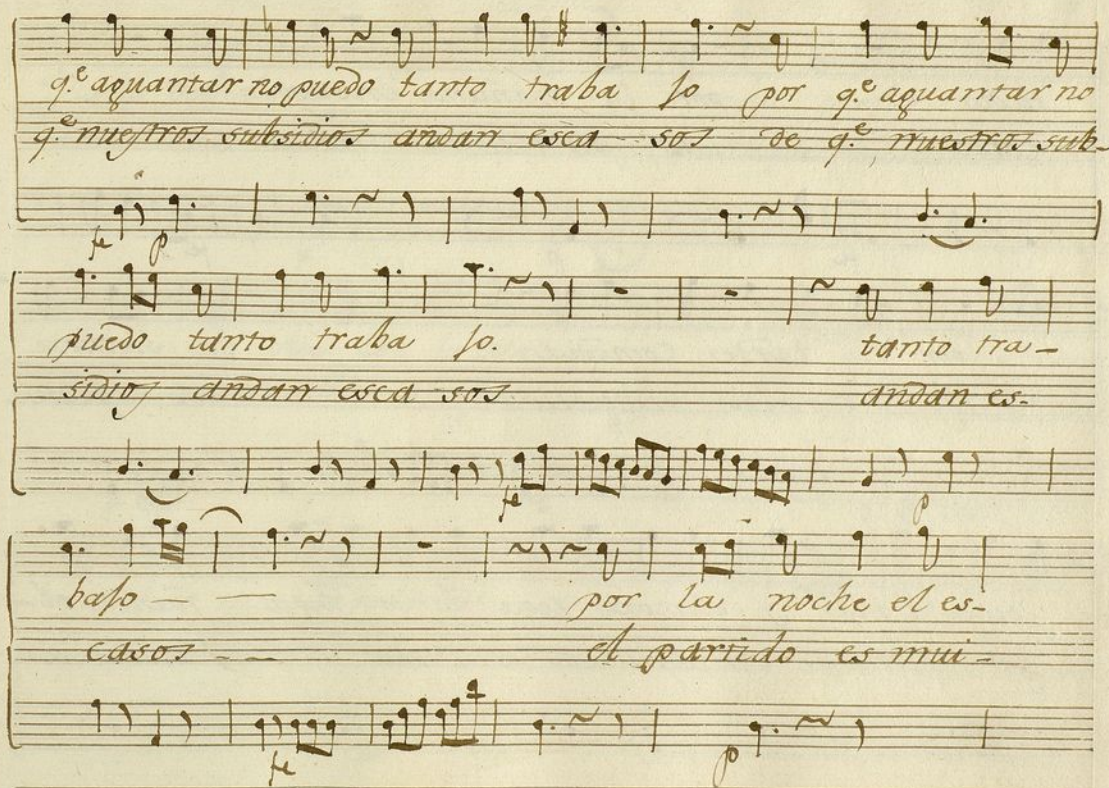 q.e aguantar no puedo tanto traba jo por q.e aguantar no
q.e nuestros subsidios andan esca - sos de q.e nuestros sub-
fe p
puedo tanto traba jo. tanto tra-
sidios andan esca sos andan es-
fe p
bajo - - por la noche el es-
casos - - el partido es mui -
fe p